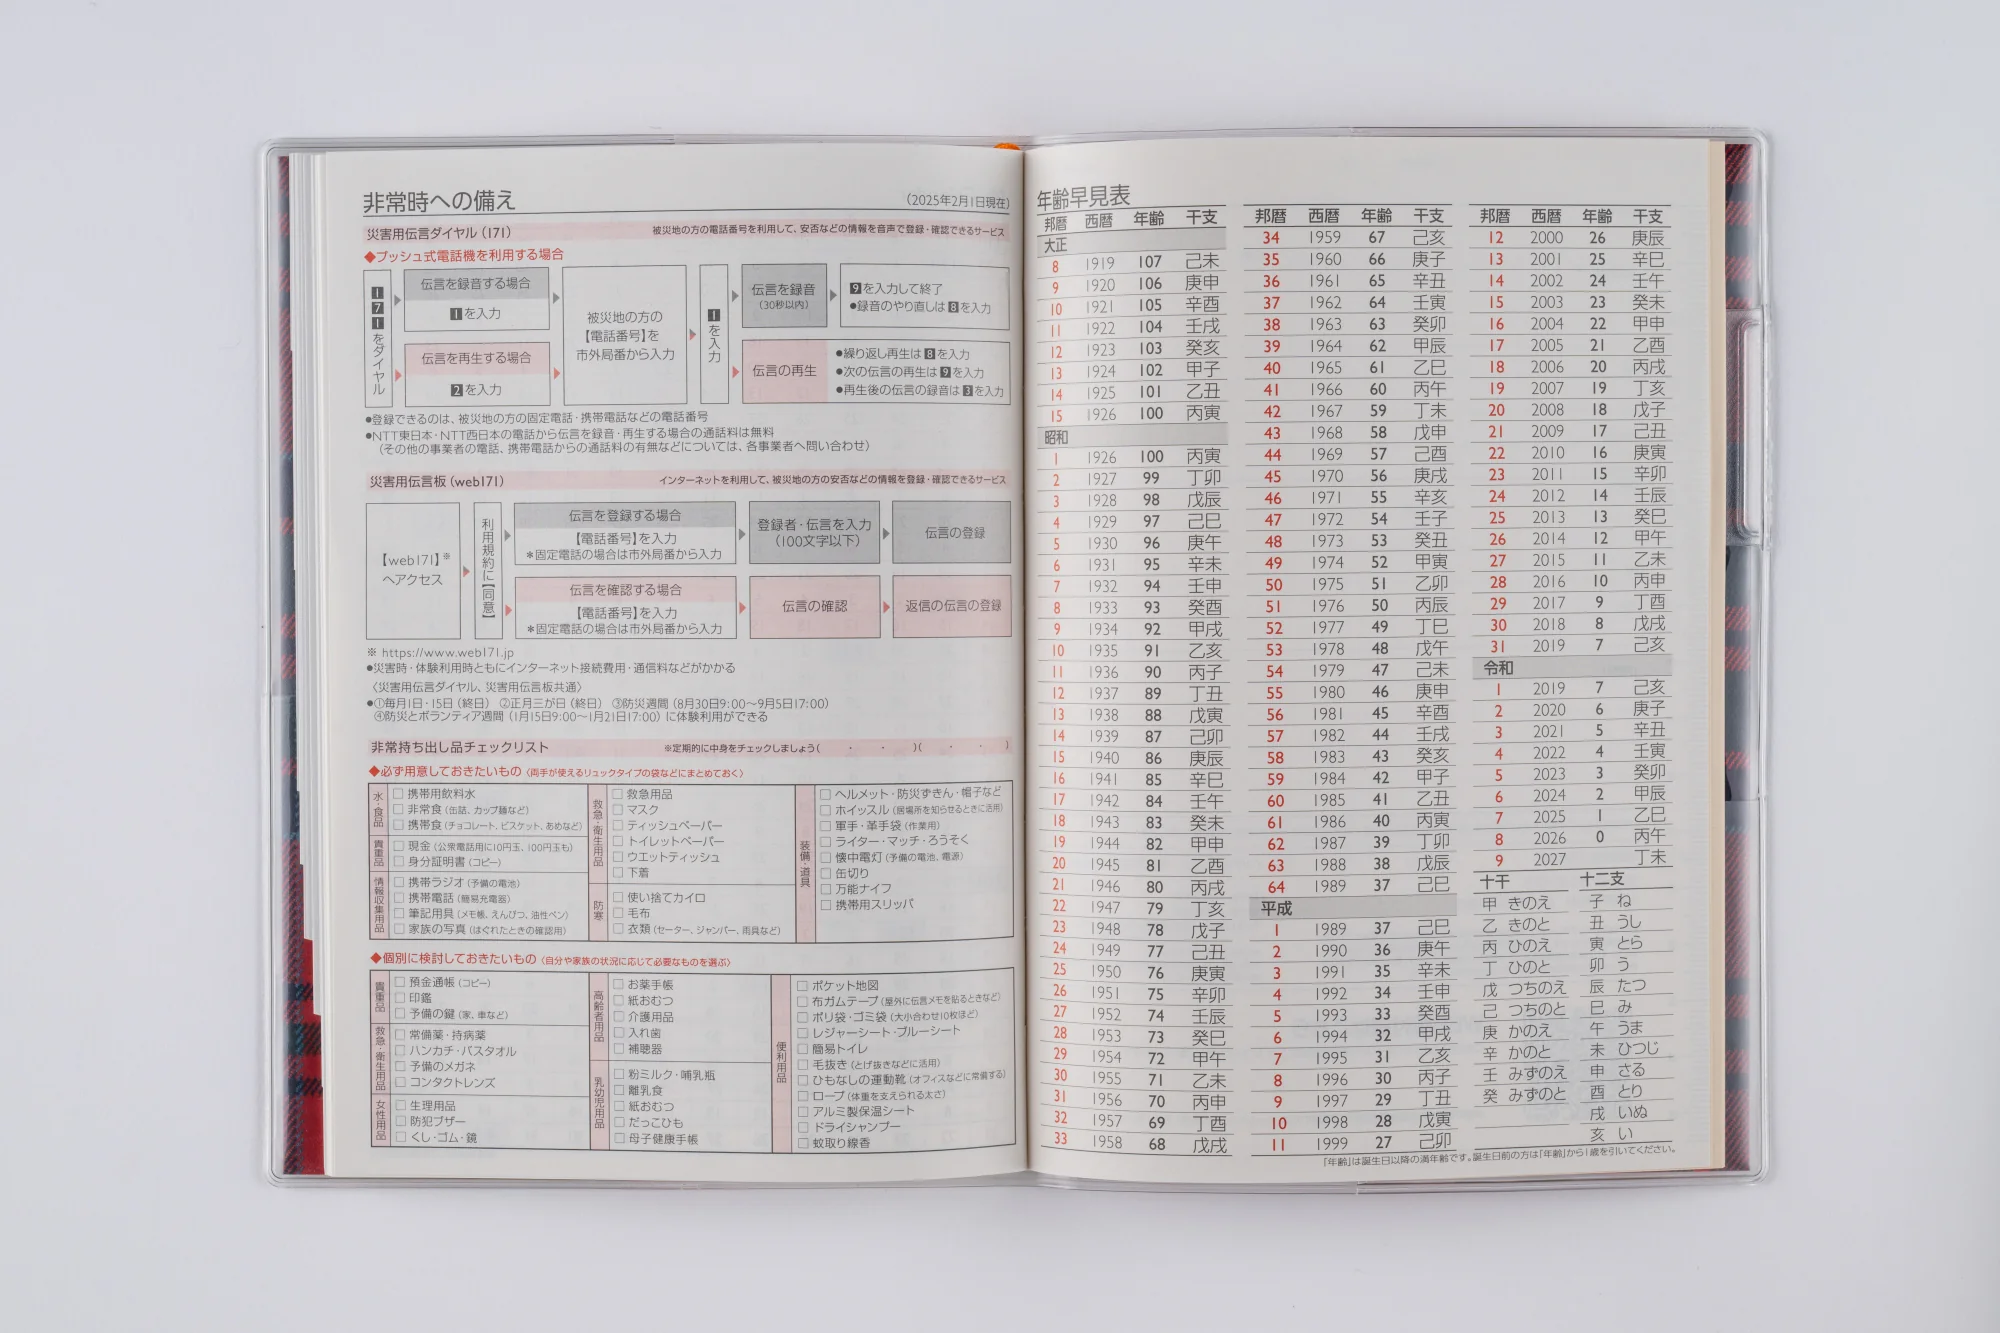 非常時への備え
（2025年2月1日現在）
災害用伝言ダイヤル（171）
被災地の方の電話番号を利用して、安否などの情報を音声で登録・確認できるサービス
◆プッシュ式電話機を利用する場合
171をダイヤル
伝言を録音する場合
1を入力
伝言を再生する場合
2を入力
被災地の方の
【電話番号】を
市外局番から入力
1を入力
伝言を録音
（30秒以内）
9を入力して終了
●録音のやり直しは8を入力
伝言の再生
●繰り返し再生は8を入力
●次の伝言の再生は9を入力
●再生後の伝言の録音は3を入力
●登録できるのは、被災地の方の固定電話・携帯電話などの電話番号
●NTT東日本・NTT西日本の電話から伝言を録音・再生する場合の通話料は無料
（その他の事業者の電話、携帯電話からの通話料の有無などについては、各事業者へ問い合わせ）
災害用伝言板（web171）
インターネットを利用して、被災地の方の安否などの情報を登録・確認できるサービス
【web171】※
へアクセス
利用規約に【同意】
伝言を登録する場合
【電話番号】を入力
＊固定電話の場合は市外局番から入力
登録者・伝言を入力
（100文字以下）
伝言の登録
伝言を確認する場合
【電話番号】を入力
＊固定電話の場合は市外局番から入力
伝言の確認
返信の伝言の登録
※ https://www.web171.jp
●災害時・体験利用時ともにインターネット接続費用・通信料などがかかる
〈災害用伝言ダイヤル、災害用伝言板共通〉
●①毎月1日・15日（終日） ②正月三が日（終日） ③防災週間（8月30日9:00〜9月5日17:00）
④防災とボランティア週間（1月15日9:00〜1月21日17:00）に体験利用ができる
非常持ち出し品チェックリスト
※定期的に中身をチェックしましょう（ ・ ・ ）（ ・ ・ ）
◆必ず用意しておきたいもの〈両手が使えるリュックタイプの袋などにまとめておく〉
水・食品
□ 携帯用飲料水
□ 非常食（缶詰、カップ麺など）
□ 携帯食（チョコレート、ビスケット、あめなど）
貴重品
□ 現金（公衆電話用に10円玉、100円玉も）
□ 身分証明書（コピー）
情報収集用品
□ 携帯ラジオ（予備の電池）
□ 携帯電話（簡易充電器）
□ 筆記用具（メモ帳、えんぴつ、油性ペン）
□ 家族の写真（はぐれたときの確認用）
救急・衛生用品
□ 救急用品
□ マスク
□ ティッシュペーパー
□ トイレットペーパー
□ ウエットティッシュ
□ 下着
防寒
□ 使い捨てカイロ
□ 毛布
□ 衣類（セーター、ジャンパー、雨具など）
装備・道具
□ ヘルメット・防災ずきん・帽子など
□ ホイッスル（居場所を知らせるときに活用）
□ 軍手・革手袋（作業用）
□ ライター・マッチ・ろうそく
□ 懐中電灯（予備の電池、電源）
□ 缶切り
□ 万能ナイフ
□ 携帯用スリッパ
◆個別に検討しておきたいもの〈自分や家族の状況に応じて必要なものを選ぶ〉
貴重品
□ 預金通帳（コピー）
□ 印鑑
□ 予備の鍵（家、車など）
救急・衛生用品
□ 常備薬・持病薬
□ ハンカチ・バスタオル
□ 予備のメガネ
□ コンタクトレンズ
女性用品
□ 生理用品
□ 防犯ブザー
□ くし・ゴム・鏡
高齢者用品
□ お薬手帳
□ 紙おむつ
□ 介護用品
□ 入れ歯
□ 補聴器
乳幼児用品
□ 粉ミルク・哺乳瓶
□ 離乳食
□ 紙おむつ
□ だっこひも
□ 母子健康手帳
便利用品
□ ポケット地図
□ 布ガムテープ（屋外に伝言メモを貼るときなど）
□ ポリ袋・ゴミ袋（大小合わせ10枚ほど）
□ レジャーシート・ブルーシート
□ 簡易トイレ
□ 毛抜き（とげ抜きなどに活用）
□ ひもなしの運動靴（オフィスなどに常備する）
□ ロープ（体重を支えられる太さ）
□ アルミ製保温シート
□ ドライシャンプー
□ 蚊取り線香
年齢早見表
邦暦 西暦 年齢 干支
大正
8 1919 107 己未
9 1920 106 庚申
10 1921 105 辛酉
11 1922 104 壬戌
12 1923 103 癸亥
13 1924 102 甲子
14 1925 101 乙丑
15 1926 100 丙寅
昭和
1 1926 100 丙寅
2 1927 99 丁卯
3 1928 98 戊辰
4 1929 97 己巳
5 1930 96 庚午
6 1931 95 辛未
7 1932 94 壬申
8 1933 93 癸酉
9 1934 92 甲戌
10 1935 91 乙亥
11 1936 90 丙子
12 1937 89 丁丑
13 1938 88 戊寅
14 1939 87 己卯
15 1940 86 庚辰
16 1941 85 辛巳
17 1942 84 壬午
18 1943 83 癸未
19 1944 82 甲申
20 1945 81 乙酉
21 1946 80 丙戌
22 1947 79 丁亥
23 1948 78 戊子
24 1949 77 己丑
25 1950 76 庚寅
26 1951 75 辛卯
27 1952 74 壬辰
28 1953 73 癸巳
29 1954 72 甲午
30 1955 71 乙未
31 1956 70 丙申
32 1957 69 丁酉
33 1958 68 戊戌
邦暦 西暦 年齢 干支
34 1959 67 己亥
35 1960 66 庚子
36 1961 65 辛丑
37 1962 64 壬寅
38 1963 63 癸卯
39 1964 62 甲辰
40 1965 61 乙巳
41 1966 60 丙午
42 1967 59 丁未
43 1968 58 戊申
44 1969 57 己酉
45 1970 56 庚戌
46 1971 55 辛亥
47 1972 54 壬子
48 1973 53 癸丑
49 1974 52 甲寅
50 1975 51 乙卯
51 1976 50 丙辰
52 1977 49 丁巳
53 1978 48 戊午
54 1979 47 己未
55 1980 46 庚申
56 1981 45 辛酉
57 1982 44 壬戌
58 1983 43 癸亥
59 1984 42 甲子
60 1985 41 乙丑
61 1986 40 丙寅
62 1987 39 丁卯
63 1988 38 戊辰
64 1989 37 己巳
平成
1 1989 37 己巳
2 1990 36 庚午
3 1991 35 辛未
4 1992 34 壬申
5 1993 33 癸酉
6 1994 32 甲戌
7 1995 31 乙亥
8 1996 30 丙子
9 1997 29 丁丑
10 1998 28 戊寅
11 1999 27 己卯
邦暦 西暦 年齢 干支
12 2000 26 庚辰
13 2001 25 辛巳
14 2002 24 壬午
15 2003 23 癸未
16 2004 22 甲申
17 2005 21 乙酉
18 2006 20 丙戌
19 2007 19 丁亥
20 2008 18 戊子
21 2009 17 己丑
22 2010 16 庚寅
23 2011 15 辛卯
24 2012 14 壬辰
25 2013 13 癸巳
26 2014 12 甲午
27 2015 11 乙未
28 2016 10 丙申
29 2017 9 丁酉
30 2018 8 戊戌
31 2019 7 己亥
令和
1 2019 7 己亥
2 2020 6 庚子
3 2021 5 辛丑
4 2022 4 壬寅
5 2023 3 癸卯
6 2024 2 甲辰
7 2025 1 乙巳
8 2026 0 丙午
9 2027 丁未
十干
甲 きのえ
乙 きのと
丙 ひのえ
丁 ひのと
戊 つちのえ
己 つちのと
庚 かのえ
辛 かのと
壬 みずのえ
癸 みずのと
十二支
子 ね
丑 うし
寅 とら
卯 う
辰 たつ
巳 み
午 うま
未 ひつじ
申 さる
酉 とり
戌 いぬ
亥 い
「年齢」は誕生日以降の満年齢です。誕生日前の方は「年齢」から1歳を引いてください。